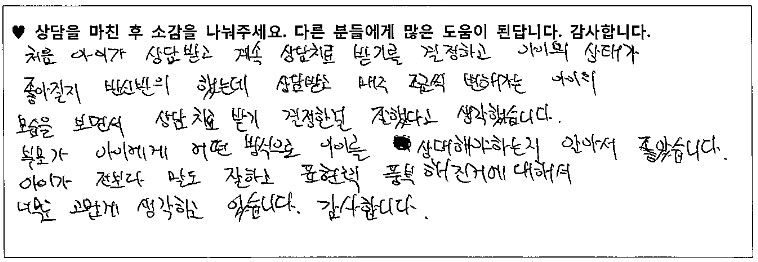 ♥ 상담을 마친 후 소감을 나눠주세요. 다른 분들에게 많은 도움이 된답니다. 감사합니다.
처음 아이가 상담받고 계속 상담치료 받기를 결정하고 아이의 상태가
좋아질지 반신반의 했는데 상담받고 매주 조금씩 변해가는 아이의
모습을 보면서 상담치료 받기 결정한걸 잘했다고 생각했습니다.
부모가 아이에게 어떤 방식으로 아이를 상대해야하는지 알아서 좋았습니다.
아이가 전보다 말도 잘하고 표현력 풍부해진거에 대해서
너무 고맙게 생각하고 있습니다. 감사합니다.